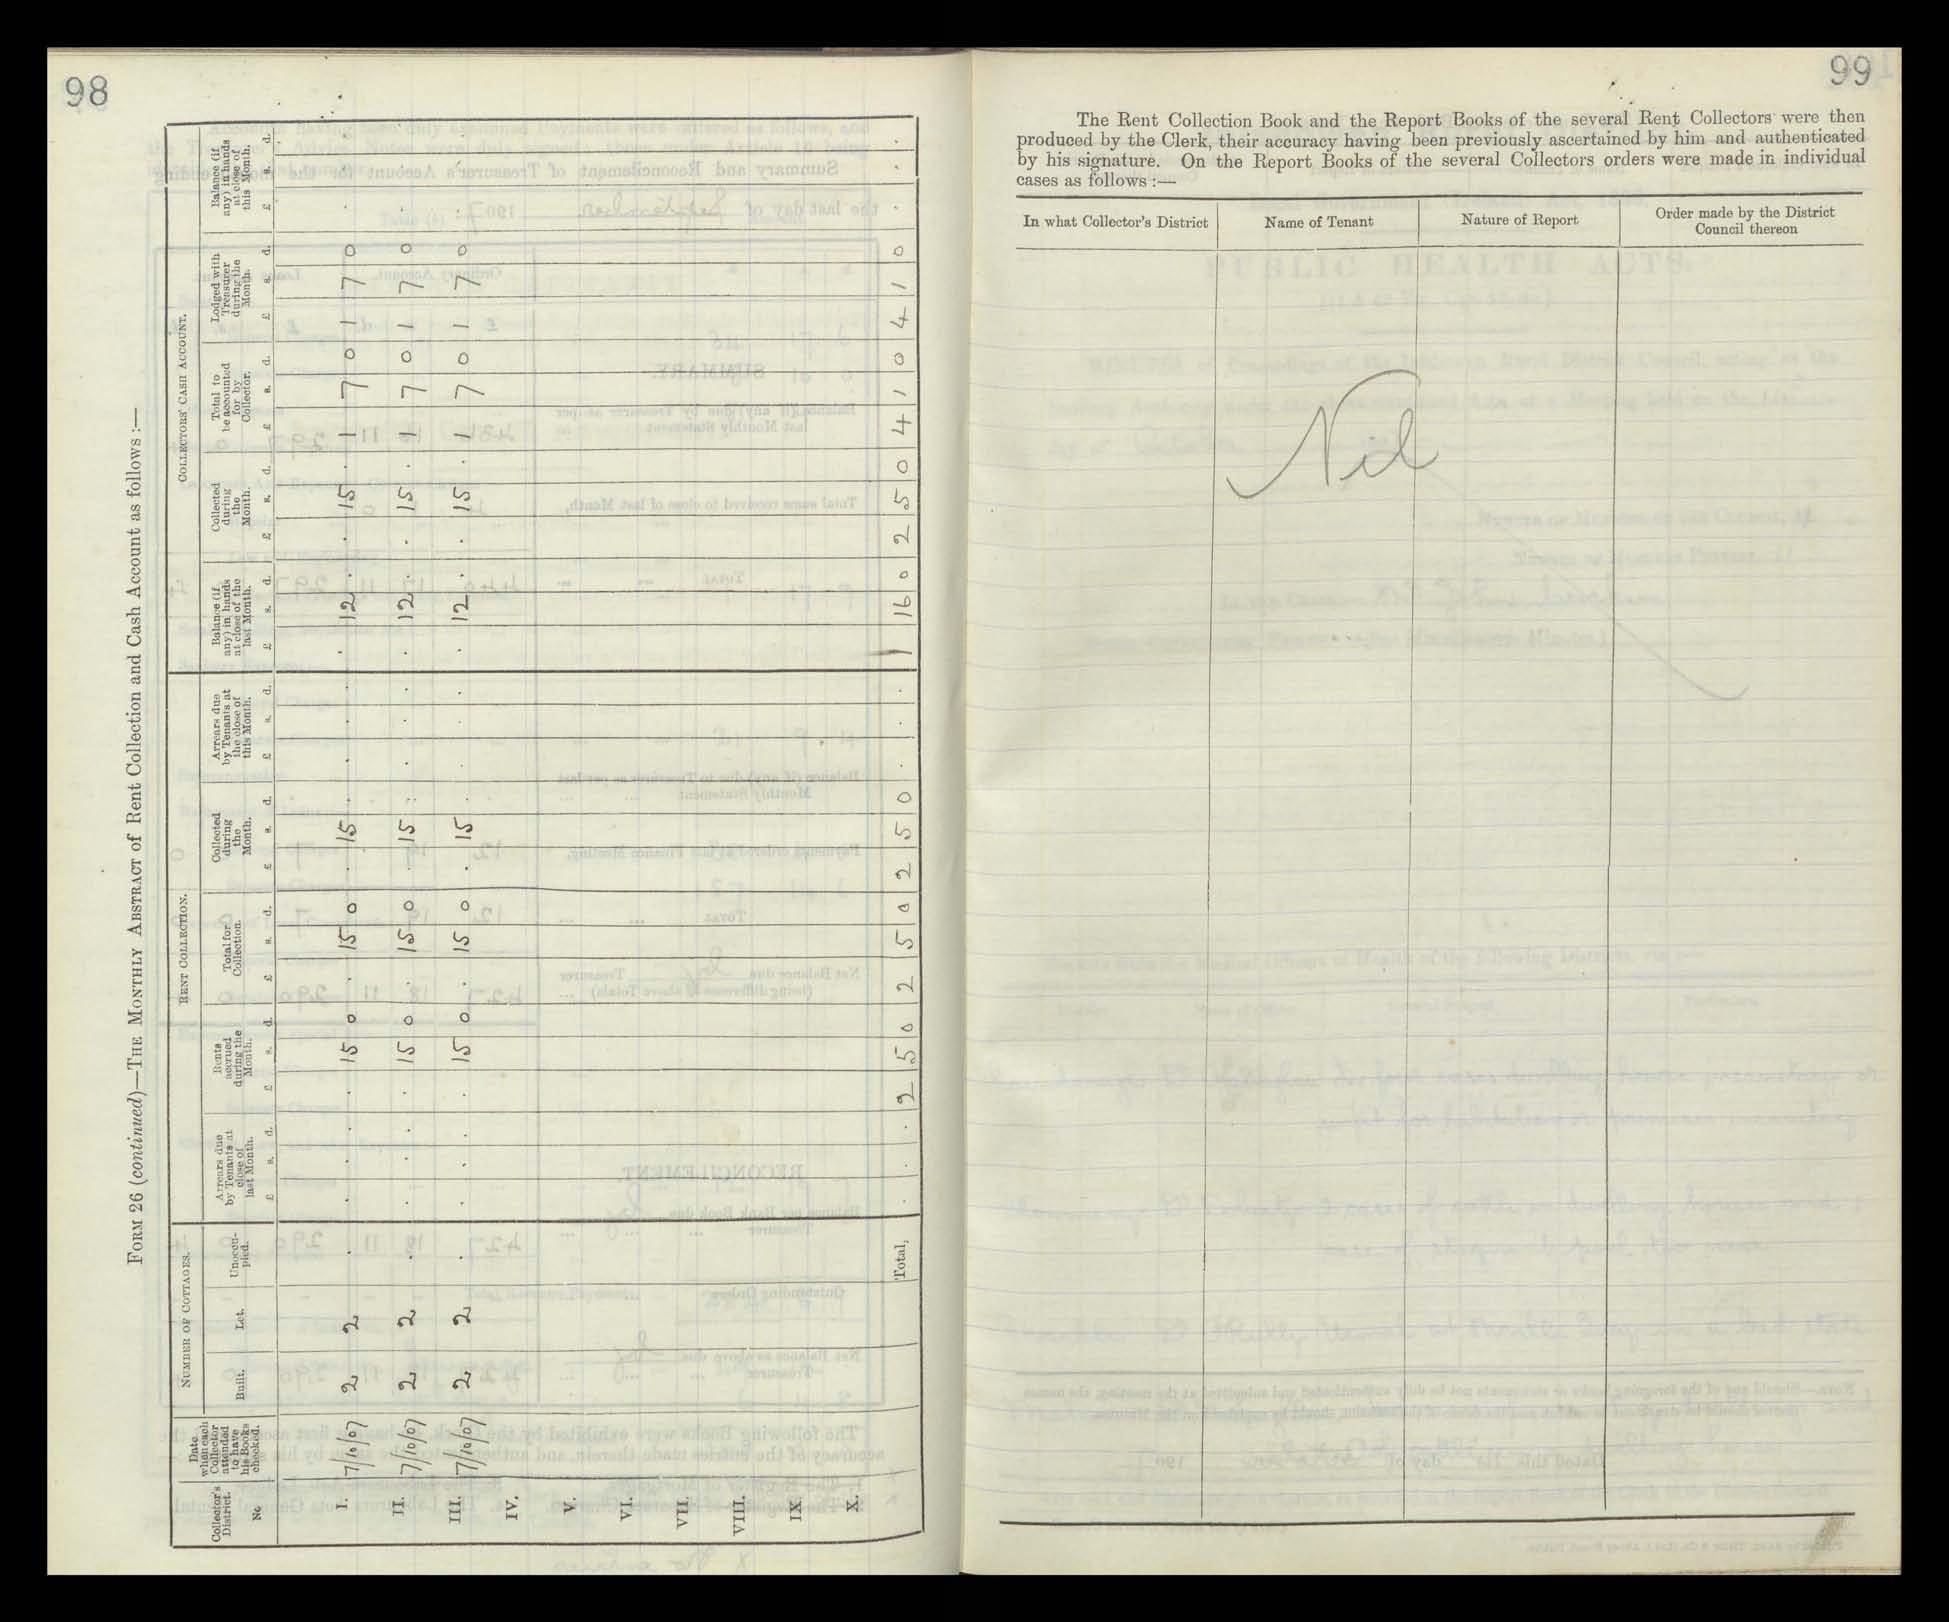 98
FORM 26 (continued)—THE MONTHLY ABSTRACT of Rent Collection and Cash Account as follows :—
Collector's District. No | Date when each Collector attended to have his Books checked. | NUMBER OF COTTAGES. | RENT COLLECTION. | COLLECTORS' CASH ACCOUNT.
Built. | Let. | Unoccupied. | Arrears due by Tenants at close of last Month. | Rents accrued during the Month. | Total for Collection. | Collected during the Month. | Arrears due by Tenants at the close of this Month. | Balance (if any) in hands at close of the last Month. | Collected during the Month. | Total to be accounted for by Collector. | Lodged with Treasurer during the Month. | Balance (if any) in hands at close of this Month.
£ s. d. | £ s. d. | £ s. d. | £ s. d. | £ s. d. | £ s. d. | £ s. d. | £ s. d. | £ s. d. | £ s. d.
I. | 7/10/07 | 2 | 2 | . | . . . | . 15 0 | . 15 0 | . 15 . | . . . | . 12 . | . 15 . | 1 7 0 | 1 7 0 | . . .
II. | 7/10/07 | 2 | 2 | . | . . . | . 15 0 | . 15 0 | . 15 . | . . . | . 12 . | . 15 . | 1 7 0 | 1 7 0 | . . .
III. | 7/10/07 | 2 | 2 | . | . . . | . 15 0 | . 15 0 | . 15 . | . . . | . 12 . | . 15 . | 1 7 0 | 1 7 0 | . . .
IV.
V.
VI.
VII.
VIII.
IX.
X.
Total, | . . . | 2 5 0 | 2 5 0 | 2 5 0 | . . . | 1 16 0 | 2 5 0 | 4 1 0 | 4 1 0 | . . .
99
The Rent Collection Book and the Report Books of the several Rent Collectors were then
produced by the Clerk, their accuracy having been previously ascertained by him and authenticated
by his signature. On the Report Books of the several Collectors orders were made in individual
cases as follows :—
In what Collector's District | Name of Tenant | Nature of Report | Order made by the District Council thereon
Nil